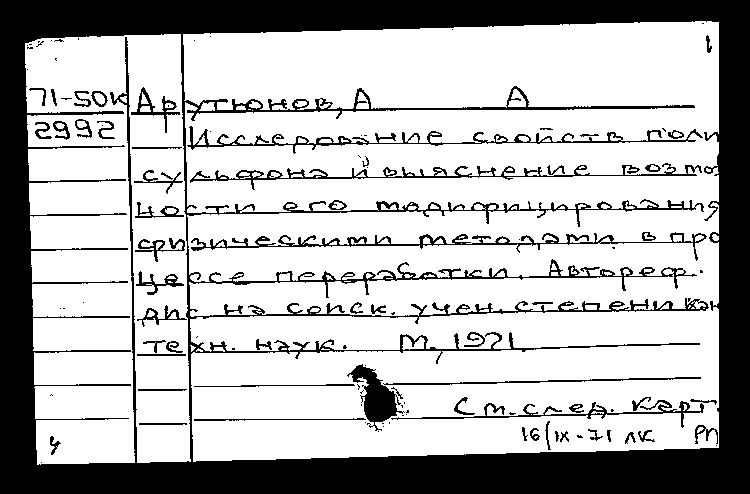 1
71-50к Арутюнов, А А
2992
Исследование свойств поли
сульфона и выяснение возмо
ности его модифицирования
физическими методами в про
цессе переработки. Автореф.
дис. на соиск. учен. степени кан
техн. наук. М., 1971.
См. след. карт.
16/IX-71 ЛК РП